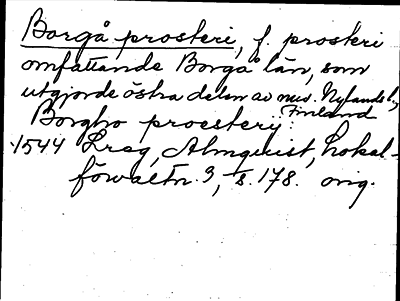 Borgå prosteri, f. prosteri
omfattande Borgå län, som
utgjorde östra delen av nuv. Nylands l.,
Finland
Borgho proestery:
1544 Lreg, Almquist, Lokal-
förvaltn. 3, s. 178. orig.